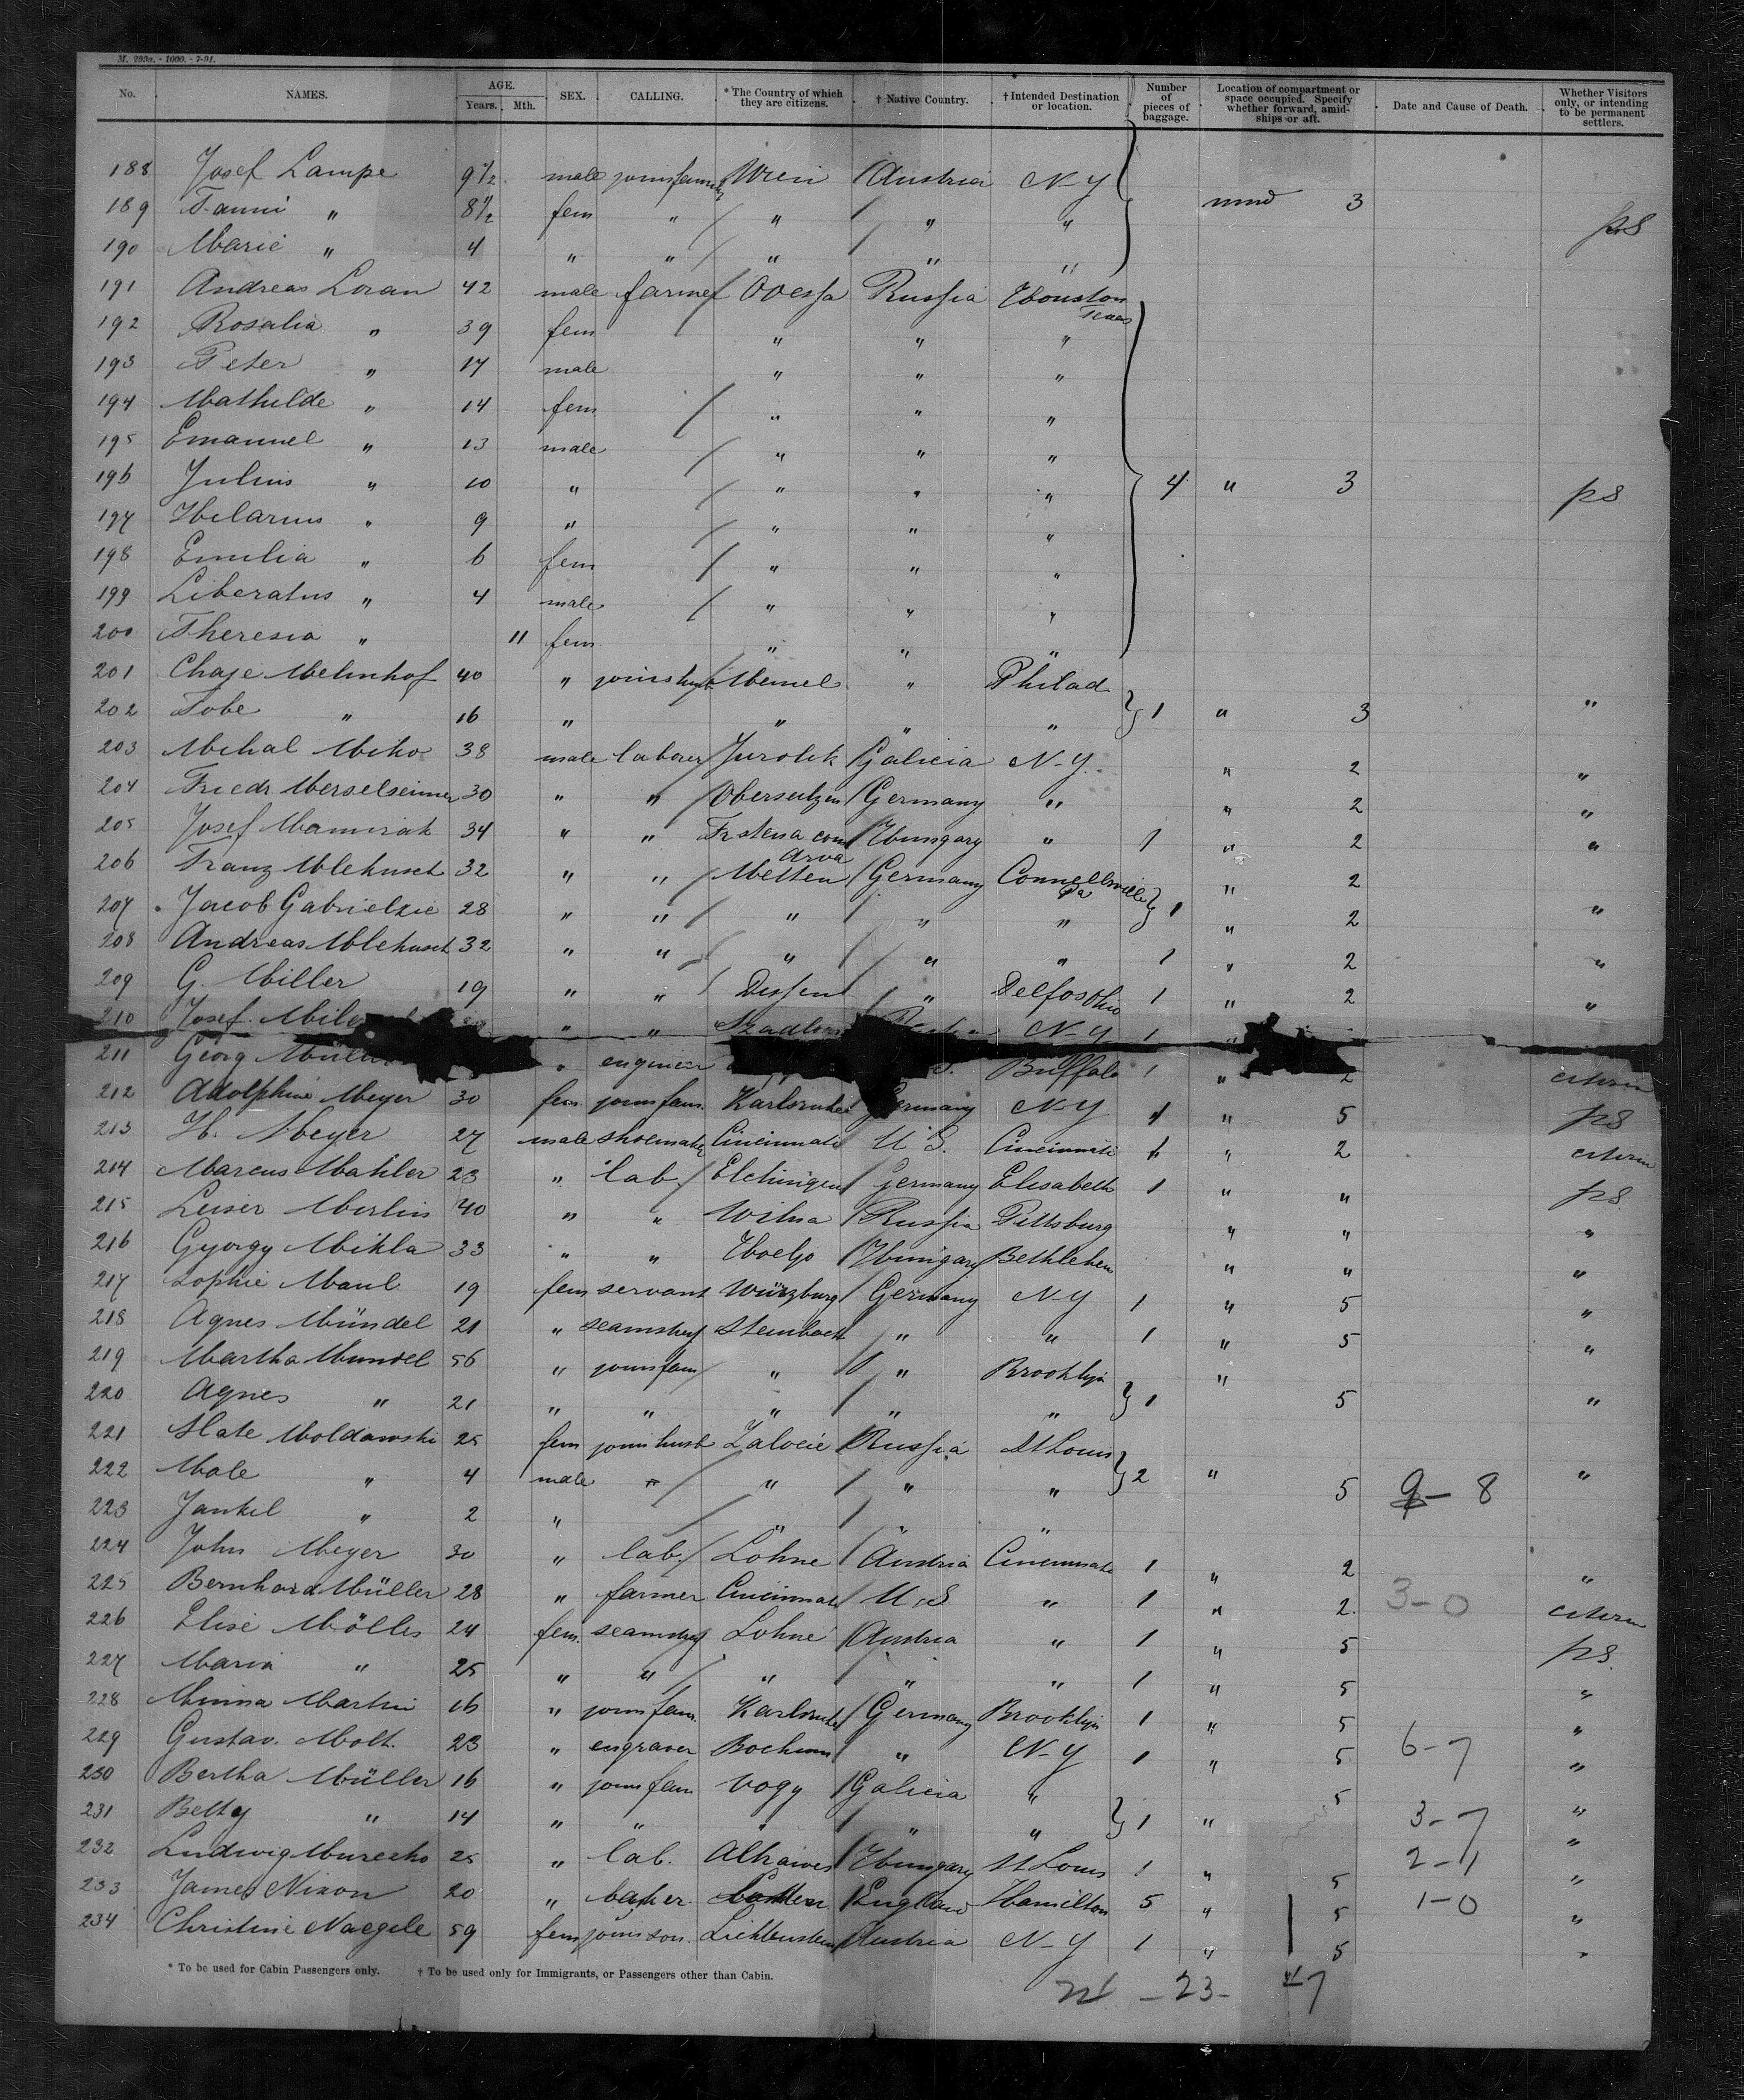 M. 299a. - 1000. - 7-91.
No. NAMES. AGE. Years. Mth. SEX. CALLING. * The Country of which they are citizens. † Native Country. † Intended Destination or location. Number of pieces of baggage. Location of compartment or space occupied. Specify whether forward, amidships or aft. Date and Cause of Death. Whether Visitors only, or intending to be permanent settlers.
188 Josef Lampe 9 1/2 male joins family Wien Austria N-Y
189 Fanni " 8 1/2 fem " " " " 3 ps
190 Marie " 4 " " " " "
191 Andreas Loran 42 male farmer Odessa Russia Houston Texas
192 Rosalia " 39 fem " " "
193 Peter " 17 male " " "
194 Mathilde " 14 fem " " "
195 Emanuel " 13 male " " "
196 Julius " 10 " " " " 4 " 3 ps
197 Hilarius " 9 " " " "
198 Emilia " 6 fem " " "
199 Liberatus " 4 male " " "
200 Theresia " 11 fem " " "
201 Chaje Melnhof 40 " joins husb Memel " Philad
202 Tobe " 16 " " " " 1 " 3 "
203 Mihal Miko 38 male laborer Galicia N-Y. " 2 "
204 Friedr 30 " " Germany " " 2 "
205 Josef 34 " " Arva Hungary " 1 " 2 "
206 Franz 32 " " Metten Germany Connellsville Pa " 2
207 Jacob 28 " " " " " 1 " 2 "
208 Andreas 32 " " " " " 1 " 2 "
209 G. Miller 19 " " " Delfos Ohio 1 " 2 "
210 Josef " " N-Y 1 "
211 Georg " engineer Buffalo 1 " 2 citizen
212 Adolphine Meyer 30 fem joins fam. Karlsruhe Germany N-Y 1 " 5 ps
213 H. Meyer 27 male shoemaker Cincinnati U.S. Cincinnati 1 " 2 citizen
214 Marcus Mahler 23 " lab. Elchingen Germany Elisabeth 1 " " ps.
215 Leiser Merlin 40 " " Wilna Russia Pittsburg " " "
216 Gyorgy Mikla 33 " " Hungary Bethlehem " " "
217 Sophie Maul 19 fem servant Würzburg Germany N-Y 1 " 5 "
218 Agnes Mündel 21 " seamstress Steinbach " " 1 " 5 "
219 Martha Mündel 56 " joins fam " " Brooklyn "
220 Agnes " 21 " " " " " 1 5 "
221 Slate Moldawski 25 fem joins husb Russia St Louis
222 Male " 4 male " " " " 2 " 5 9-8 "
223 Jankel " 2 " " " "
224 John Meyer 30 " lab. Lohne Austria Cincinnati 1 " 2 "
225 Bernhard Müller 28 " farmer Cincinnati U.S " 1 " 2. 3-0 citizen
226 Elise Mölles 24 fem. seamstress Lohne Austria " 1 " 5 ps.
227 Maria " 25 " " " " " 1 " 5 "
228 Minna Martin 16 " joins fam. Karlsruhe Germany Brooklyn 1 " 5 "
229 Gustav. Molt. 23 " engraver Bochum " N-Y 1 " 5 6-7 "
230 Bertha Müller 16 " joins fam Vogy Galicia " 5
231 Betty " 14 " " " " " 1 " 3-7 "
232 Ludwig 25 " lab. Hungary St Louis 1 " 5 2-1 "
233 James Nixon 20 " baker England Hamilton 5 " 5 1-0 "
234 Christine Naegele 59 fem joins son. Austria N-Y 1 " 5 "
* To be used for Cabin Passengers only. † To be used only for Immigrants, or Passengers other than Cabin.
- 23 - 47